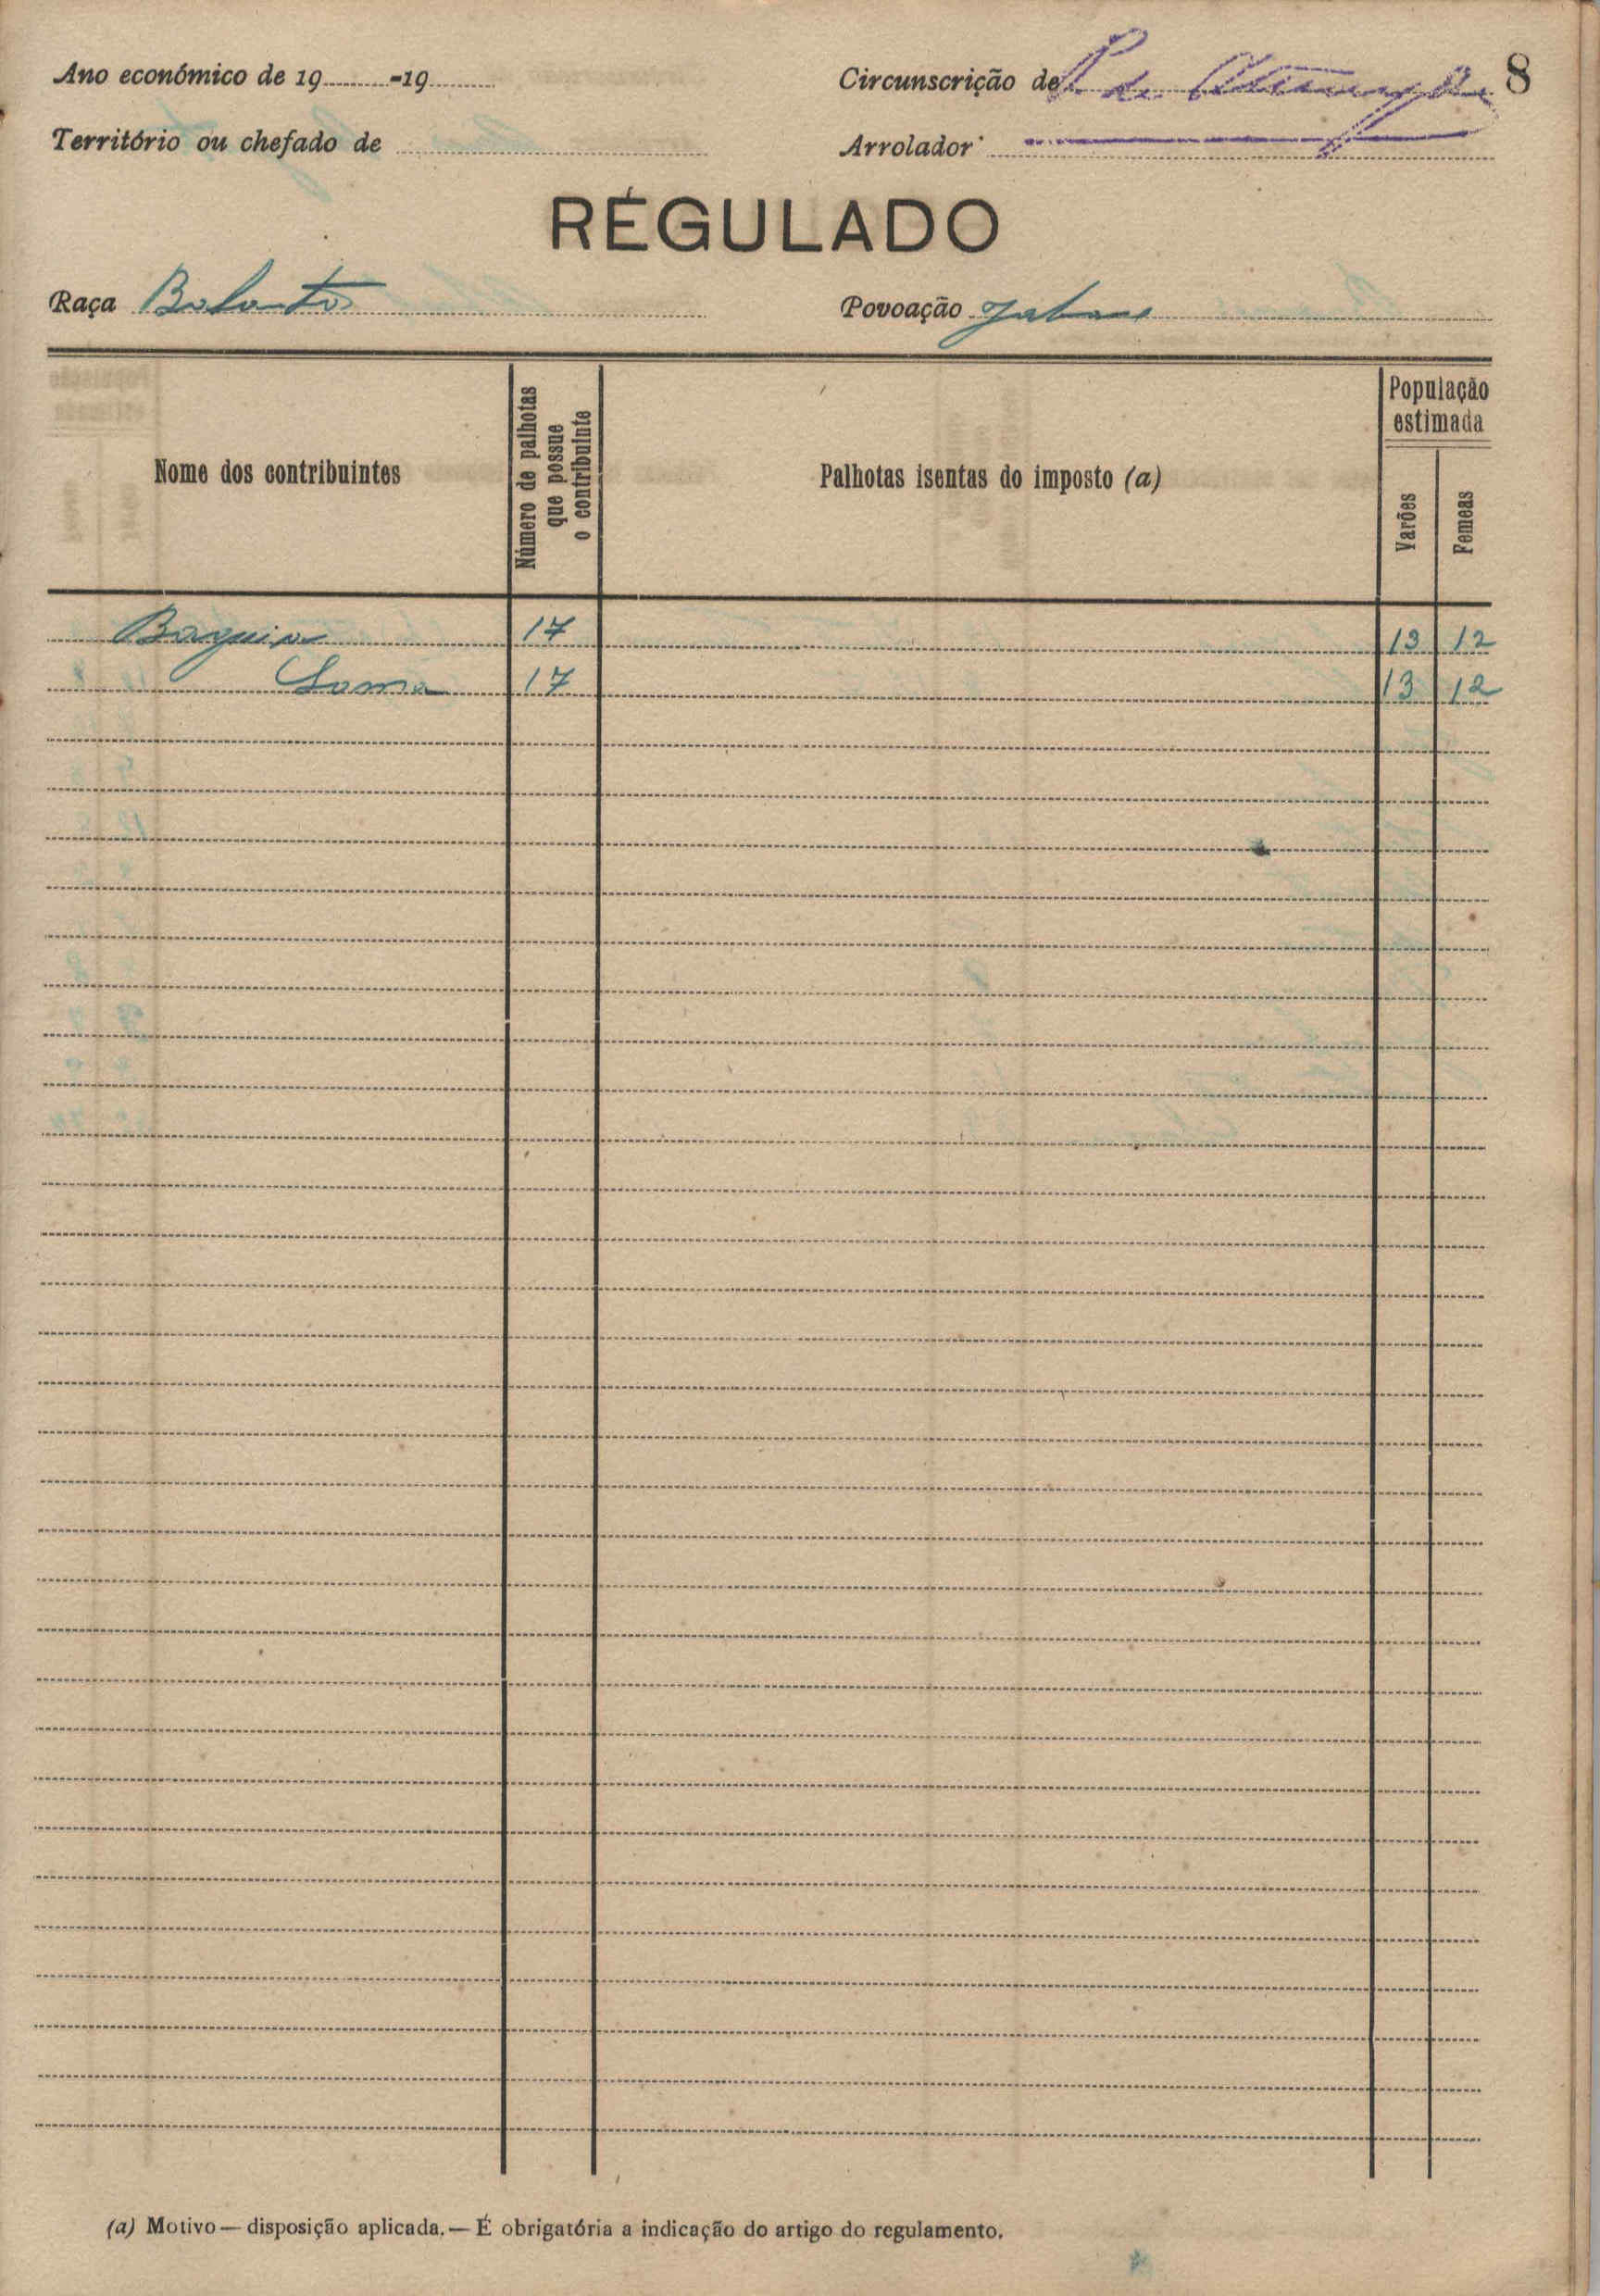 Ano económico de 19 -19
Circunscrição de
8
Território ou chefado de
Arrolador
RÉGULADO
Raça Balanta
Povoação
Nome dos contribuintes
Número de palhotas que possue o contribuinte
Palhotas isentas do imposto (a)
População estimada
Varões
Femeas
17 13 12
Soma 17 13 12
(a) Motivo — disposição aplicada. — É obrigatória a indicação do artigo do regulamento.